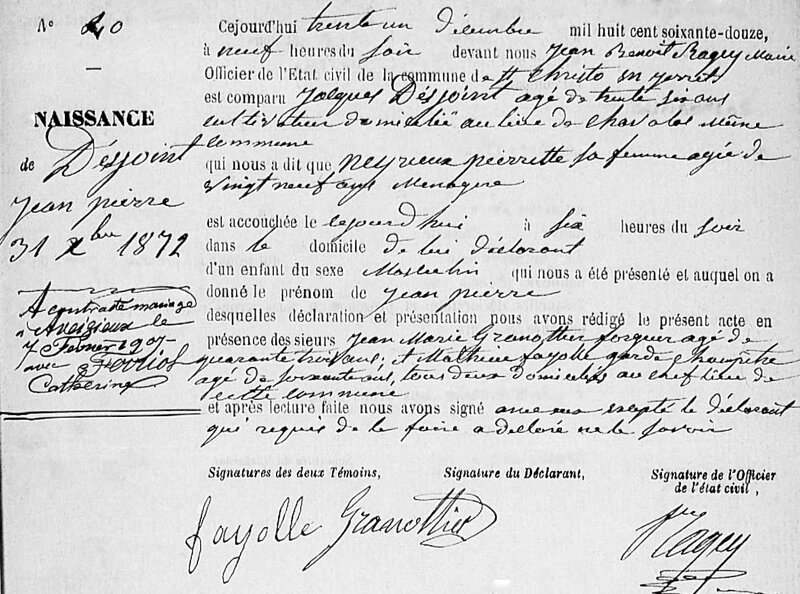 N° 20
NAISSANCE
de Désjoint
jean pierre
31 Xbre 1872
A contracté mariage
à Aveizieux le
7 Février 1907
avec
Catherine
Cejourd'hui trente un décembre mil huit cent soixante-douze,
à neuf heures du soir devant nous Jean Benoit Ragey Maire
Officier de l'Etat civil de la commune de St Christo en jarrets
est comparu Jacques Désjoint agé de trente six ans
cultivateur domicilié au lieu de Même
commune
qui nous a dit que neyrieux pierrette sa femme agée de
vingt neuf ans Menagere
est accouchée le cejourd'hui à six heures du soir
dans le domicile de lui déclarant
d'un enfant du sexe Masculin qui nous a été présenté et auquel on a
donné le prénom de jean pierre
desquelles déclaration et présentation nous avons rédigé le présent acte en
présence des sieurs jean Marie Granottier agé de
quarante trois ans, et Mathieu fayolle garde champêtre
agé de soixante ans, tous deux domiciliés au chef lieu de
cette commune
et après lecture faite nous avons signé avec eux excepté le déclarant
qui requis de le faire a declaré ne le savoir
Signatures des deux Témoins, Signature du Déclarant, Signature de l'Officier
de l'état civil,
fayolle Granottier Ragey